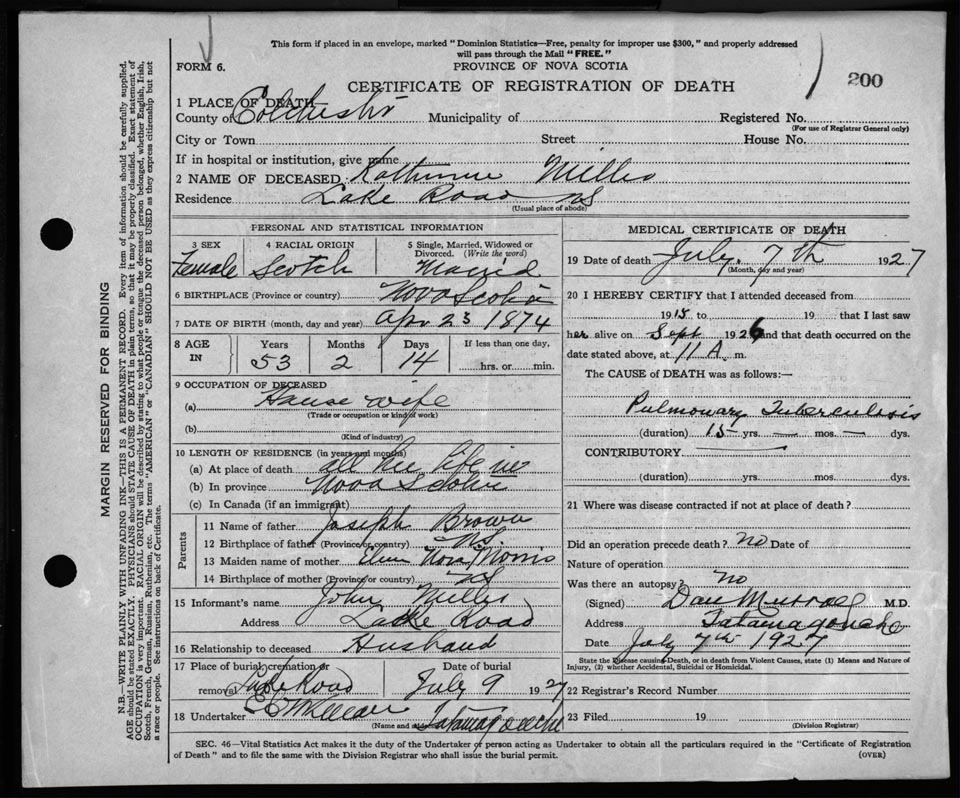 This form if placed in an envelope, marked "Dominion Statistics—Free, penalty for improper use $300," and properly addressed
will pass through the Mail "FREE."
FORM 6.
PROVINCE OF NOVA SCOTIA
200
CERTIFICATE OF REGISTRATION OF DEATH
1 PLACE OF DEATH—
County of Colchester Municipality of Registered No.
(For use of Registrar General only)
City or Town Street House No.
If in hospital or institution, give name
2 NAME OF DECEASED: Katherine Millis
Residence Lake Road NS
(Usual place of abode)
PERSONAL AND STATISTICAL INFORMATION
3 SEX 4 RACIAL ORIGIN 5 Single, Married, Widowed or
Divorced. (Write the word)
Female Scotch Married
6 BIRTHPLACE (Province or country) Nova Scotia
7 DATE OF BIRTH (month, day and year) Apr 23 1874
8 AGE IN Years Months Days If less than one day,
53 2 14 hrs. or min.
9 OCCUPATION OF DECEASED
(a) House wife
(Trade or occupation or kind of work)
(b)
(Kind of industry)
10 LENGTH OF RESIDENCE (in years and months)
(a) At place of death all her life in
(b) In province Nova Scotia
(c) In Canada (if an immigrant)
Parents
11 Name of father Joseph Brown
12 Birthplace of father (Province or country) NS
13 Maiden name of mother Morris
14 Birthplace of mother (Province or country) NS
15 Informant's name John Millis
Address Lake Road
16 Relationship to deceased Husband
17 Place of burial, cremation or Date of burial
removal Road July 9 1927
18 Undertaker Tatamagouche
(Name and address)
MEDICAL CERTIFICATE OF DEATH
19 Date of death July 7th 1927
(Month, day and year)
20 I HEREBY CERTIFY that I attended deceased from
1915 to 19 that I last saw
her alive on Sept 1926 and that death occurred on the
date stated above, at 11 A. m.
The CAUSE of DEATH was as follows:—
Pulmonary Tuberculosis
(duration) 15 yrs. — mos. — dys.
CONTRIBUTORY
(duration) yrs. mos. dys.
21 Where was disease contracted if not at place of death?
Did an operation precede death? no Date of
Nature of operation
Was there an autopsy? no
(Signed) Dan Murray M.D.
Address Tatamagouche
Date July 7th 1927
State the Disease causing Death, or in death from Violent Causes, state (1) Means and Nature of
Injury, (2) whether Accidental, Suicidal or Homicidal.
22 Registrar's Record Number
23 Filed 19
(Division Registrar)
SEC. 46—Vital Statistics Act makes it the duty of the Undertaker or person acting as Undertaker to obtain all the particulars required in the "Certificate of Registration
of Death" and to file the same with the Division Registrar who shall issue the burial permit. (OVER)
MARGIN RESERVED FOR BINDING
N.B.—WRITE PLAINLY WITH UNFADING INK—THIS IS A PERMANENT RECORD. Every item of information should be carefully supplied.
AGE should be stated EXACTLY. PHYSICIANS should STATE CAUSE OF DEATH in plain terms, so that it may be properly classified. Exact statement of
OCCUPATION is very important. RACIAL ORIGIN will be described by stating to what people or tongue the deceased person belonged, whether English, Irish,
Scotch, French, German, Russian, Ruthenian, etc. The terms "AMERICAN" or "CANADIAN" SHOULD NOT BE USED as they express citizenship but not
a race or people. See instructions on back of Certificate.